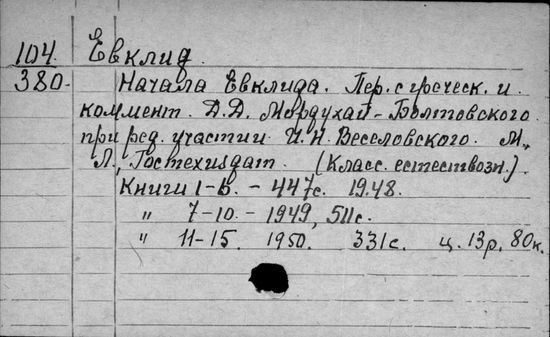 104 Евклид.
380. Начала Евклида. Пер. с греческ. и
коммент. Д.Д. Мордухай-Болтовского
при ред. участии И.Н. Веселовского. М.,
Л., Гостехиздат. (Класс. естествозн.).
Книги 1-6. - 447с. 1948.
" 7-10. - 1949, 511с.
" 11-15. 1950. 331с. ц. 13р. 80к.